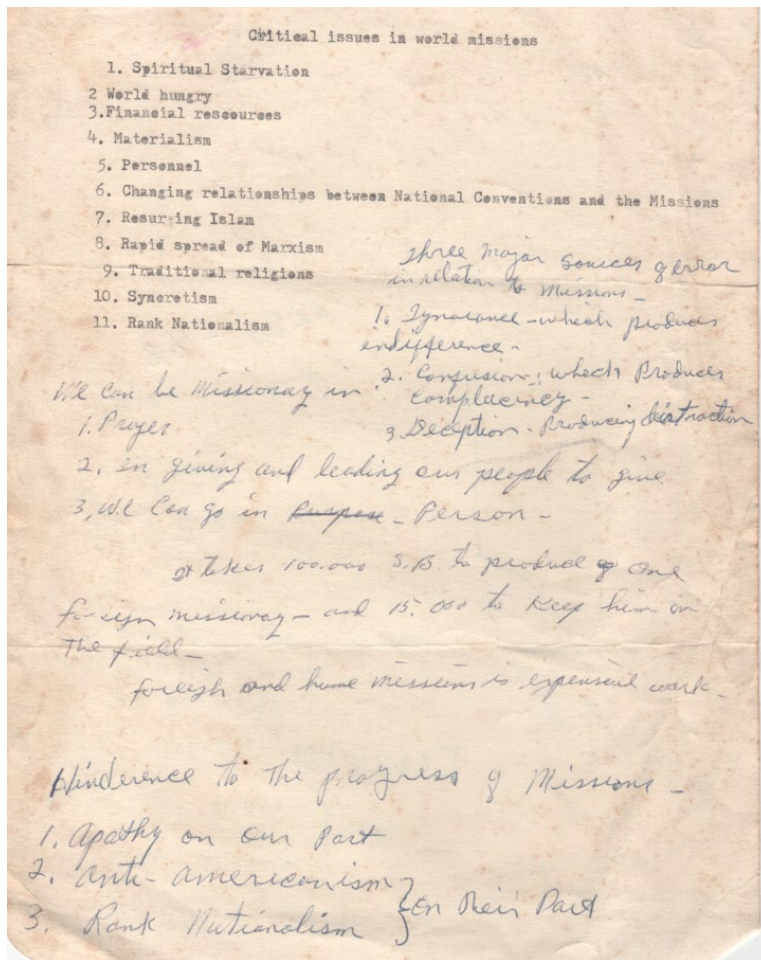 Critical issues in world missions
1. Spiritual Starvation
2 World hungry
3.Financial rescources
4. Materialism
5. Personnel
6. Changing relationships between National Conventions and the Missions
7. Resurging Islam
8. Rapid spread of Marxism
9. Traditional religions
10. Syncretism
11. Rank Nationalism
Three Major Sources of error
in relation to Missions -
1. Ignorance - which produces
indifference -
2. Confusion: which Produces
complacency -
3 Deception - Producing distraction
We can be Missionary in
1. Prayer
2. in giving and leading our people to give
3, We Can go in Purpose - Person -
It takes 100.000 S.B. to produce one
foreign missionary - and 15.000 to Keep him on
The field -
foreign and home missions is expensive work -
Hinderence to The progress of Missions -
1. Apathy on Our Part
2. Anti-americanism
3. Rank Nationalism
} on Their Part